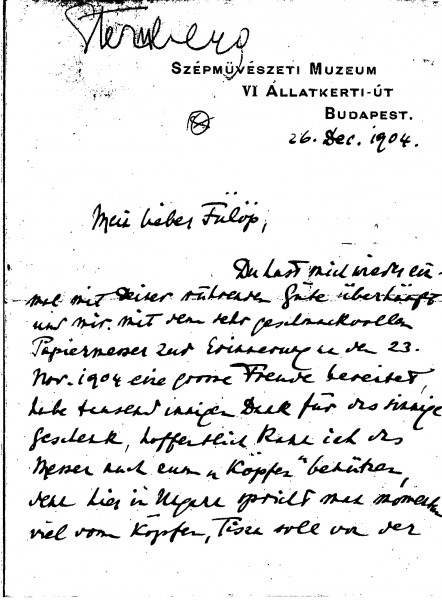 Szépművészeti Muzeum
VI Állatkerti-út
Budapest.
26. Dec. 1904.
Mein lieber Fülöp,
Du hast mich wieder ein-
mal mit Deiner rührenden Güte überhäuft
und mir mit dem sehr geschmackvollen
Papiermesser zur Erinnerung an den 23.
Nov. 1904 eine grosse Freude bereitet,
habe tausend innigen Dank für das sinnige
Geschenk, hoffentlich kann ich das
Messer auch zum „Köpfen" benützen,
denn hier in Ungarn spricht man momentan
viel vom Köpfen, Tisza soll vor der